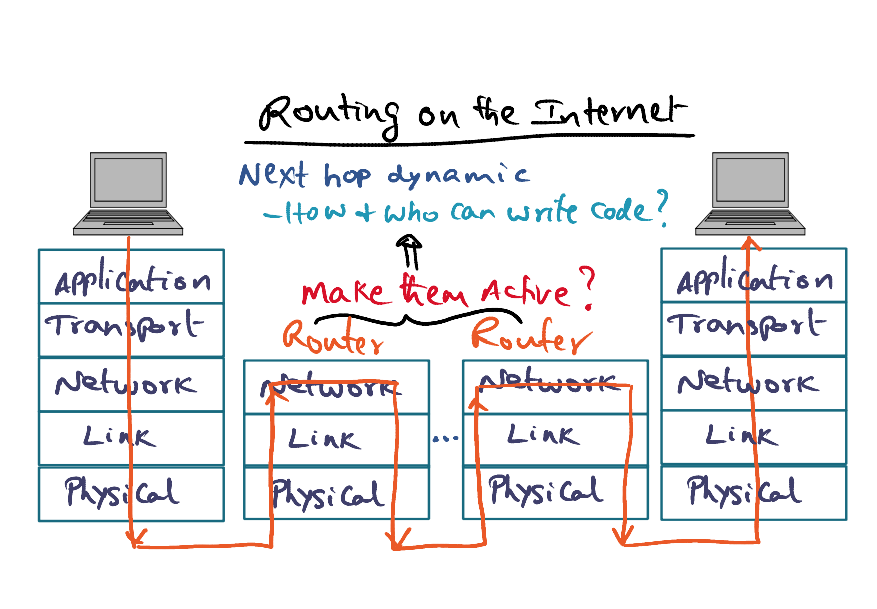 Routing on the Internet
Next hop dynamic
- How & who can write code?
Make them Active?
Router
Router
Application
Transport
Network
Link
Physical
Network
Link
Physical
...
Network
Link
Physical
Application
Transport
Network
Link
Physical